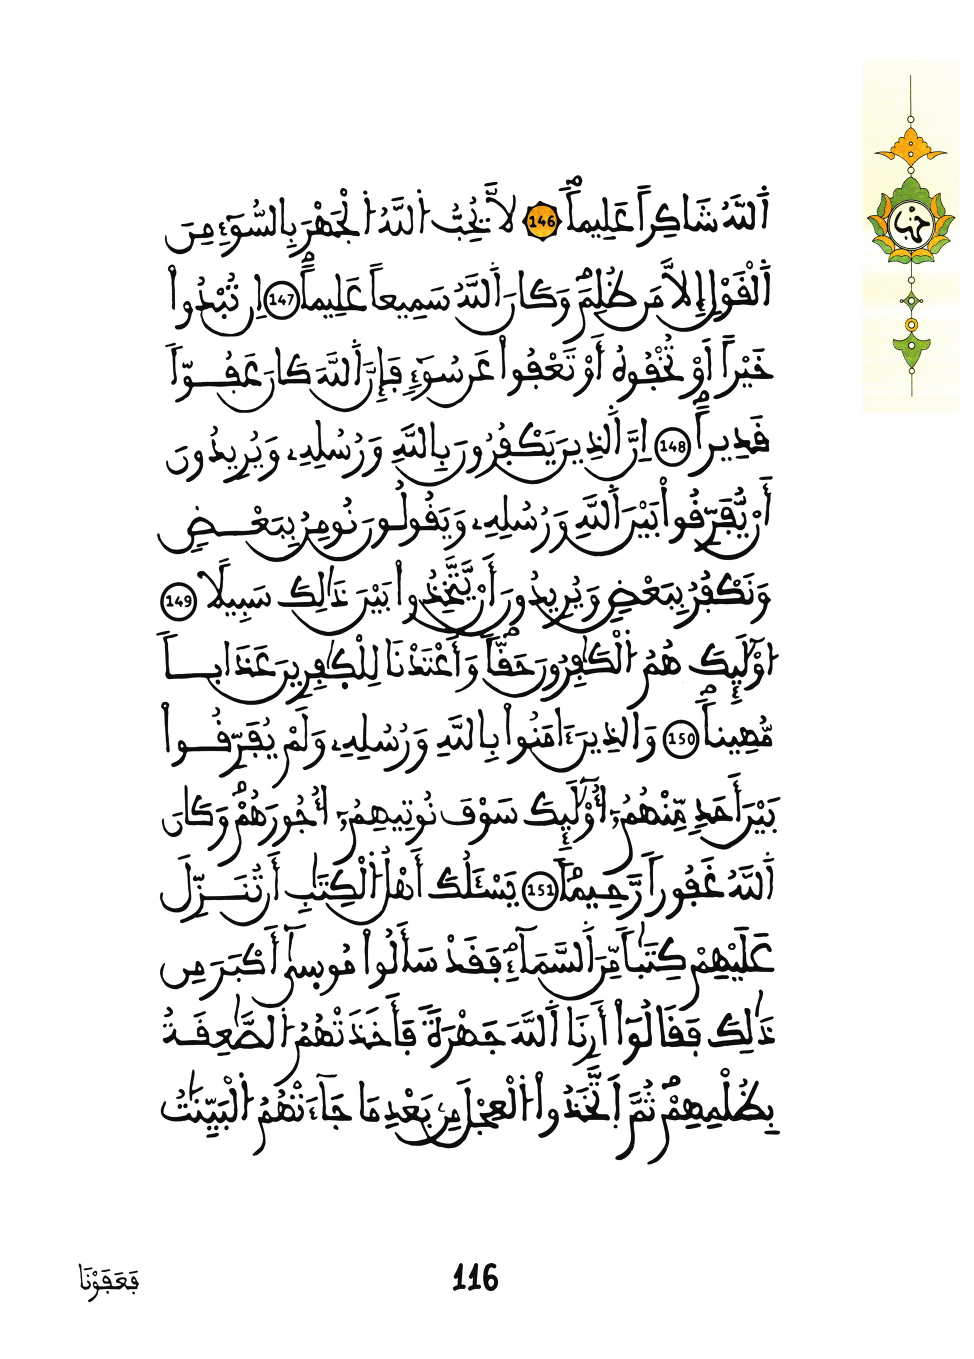 حزب
اَ۬للَّهُ شَاكِراً عَلِيماٗۖ 146 لَّا يُحِبُّ اُ۬للَّهُ اُ۬لْجَهْرَ بِالسُّوٓءِ مِنَ
اَ۬لْقَوْلِ إِلَّا مَن ظُلِمَۖ وَكَانَ اَ۬للَّهُ سَمِيعاً عَلِيماًۖ 147 اِن تُبْدُواْ
خَيْراً اَوْ تُخْفُوهُ أَوْ تَعْفُواْ عَن سُوٓءٖ فَإِنَّ اَ۬للَّهَ كَانَ عَفُوّاٗ
قَدِيراًۖ 148 اِنَّ اَ۬لذِينَ يَكْفُرُونَ بِاللَّهِ وَرُسُلِهِۦ وَيُرِيدُونَ
أَنْ يُّفَرِّقُواْ بَيْنَ اَ۬للَّهِ وَرُسُلِهِۦ وَيَقُولُونَ نُومِنُ بِبَعْضٖ
وَنَكْفُرُ بِبَعْضٖ وَيُرِيدُونَ أَنْ يَّتَّخِذُواْ بَيْنَ ذَٰلِكَ سَبِيلاً 149
ا۟وْلَٰٓئِكَ هُمُ اُ۬لْكَٰفِرُونَ حَقّاٗۖ وَأَعْتَدْنَا لِلْكٰفِرِينَ عَذَاباٗ
مُّهِيناٗۖ 150 وَالذِينَ ءَامَنُواْ بِاللَّهِ وَرُسُلِهِۦ وَلَمْ يُفَرِّقُواْ
بَيْنَ أَحَدٖ مِّنْهُمُۥٓ أُوْلَٰٓئِكَ سَوْفَ نُوتِيهِمُۥٓ أُجُورَهُمْۖ وَكَانَ
اَ۬للَّهُ غَفُوراٗ رَّحِيماٗۖ 151 يَسْـَٔلُكَ أَهْلُ اُ۬لْكِتَٰبِ أَن تُنَزِّلَ
عَلَيْهِمْ كِتَٰباٗ مِّنَ اَ۬لسَّمَآءِۖ فَقَدْ سَأَلُواْ مُوسىٰٓ أَكْبَرَ مِن
ذَٰلِكَ فَقَالُوٓاْ أَرِنَا اَ۬للَّهَ جَهْرَةٗ فَأَخَذَتْهُمُ اُ۬لصَّٰعِقَةُ
بِظُلْمِهِمْۖ ثُمَّ اَ۪تَّخَذُواْ اُ۬لْعِجْلَ مِنۢ بَعْدِ مَا جَآءَتْهُمُ اُ۬لْبَيِّنَٰتُ
فَعَفَوْنَا
116